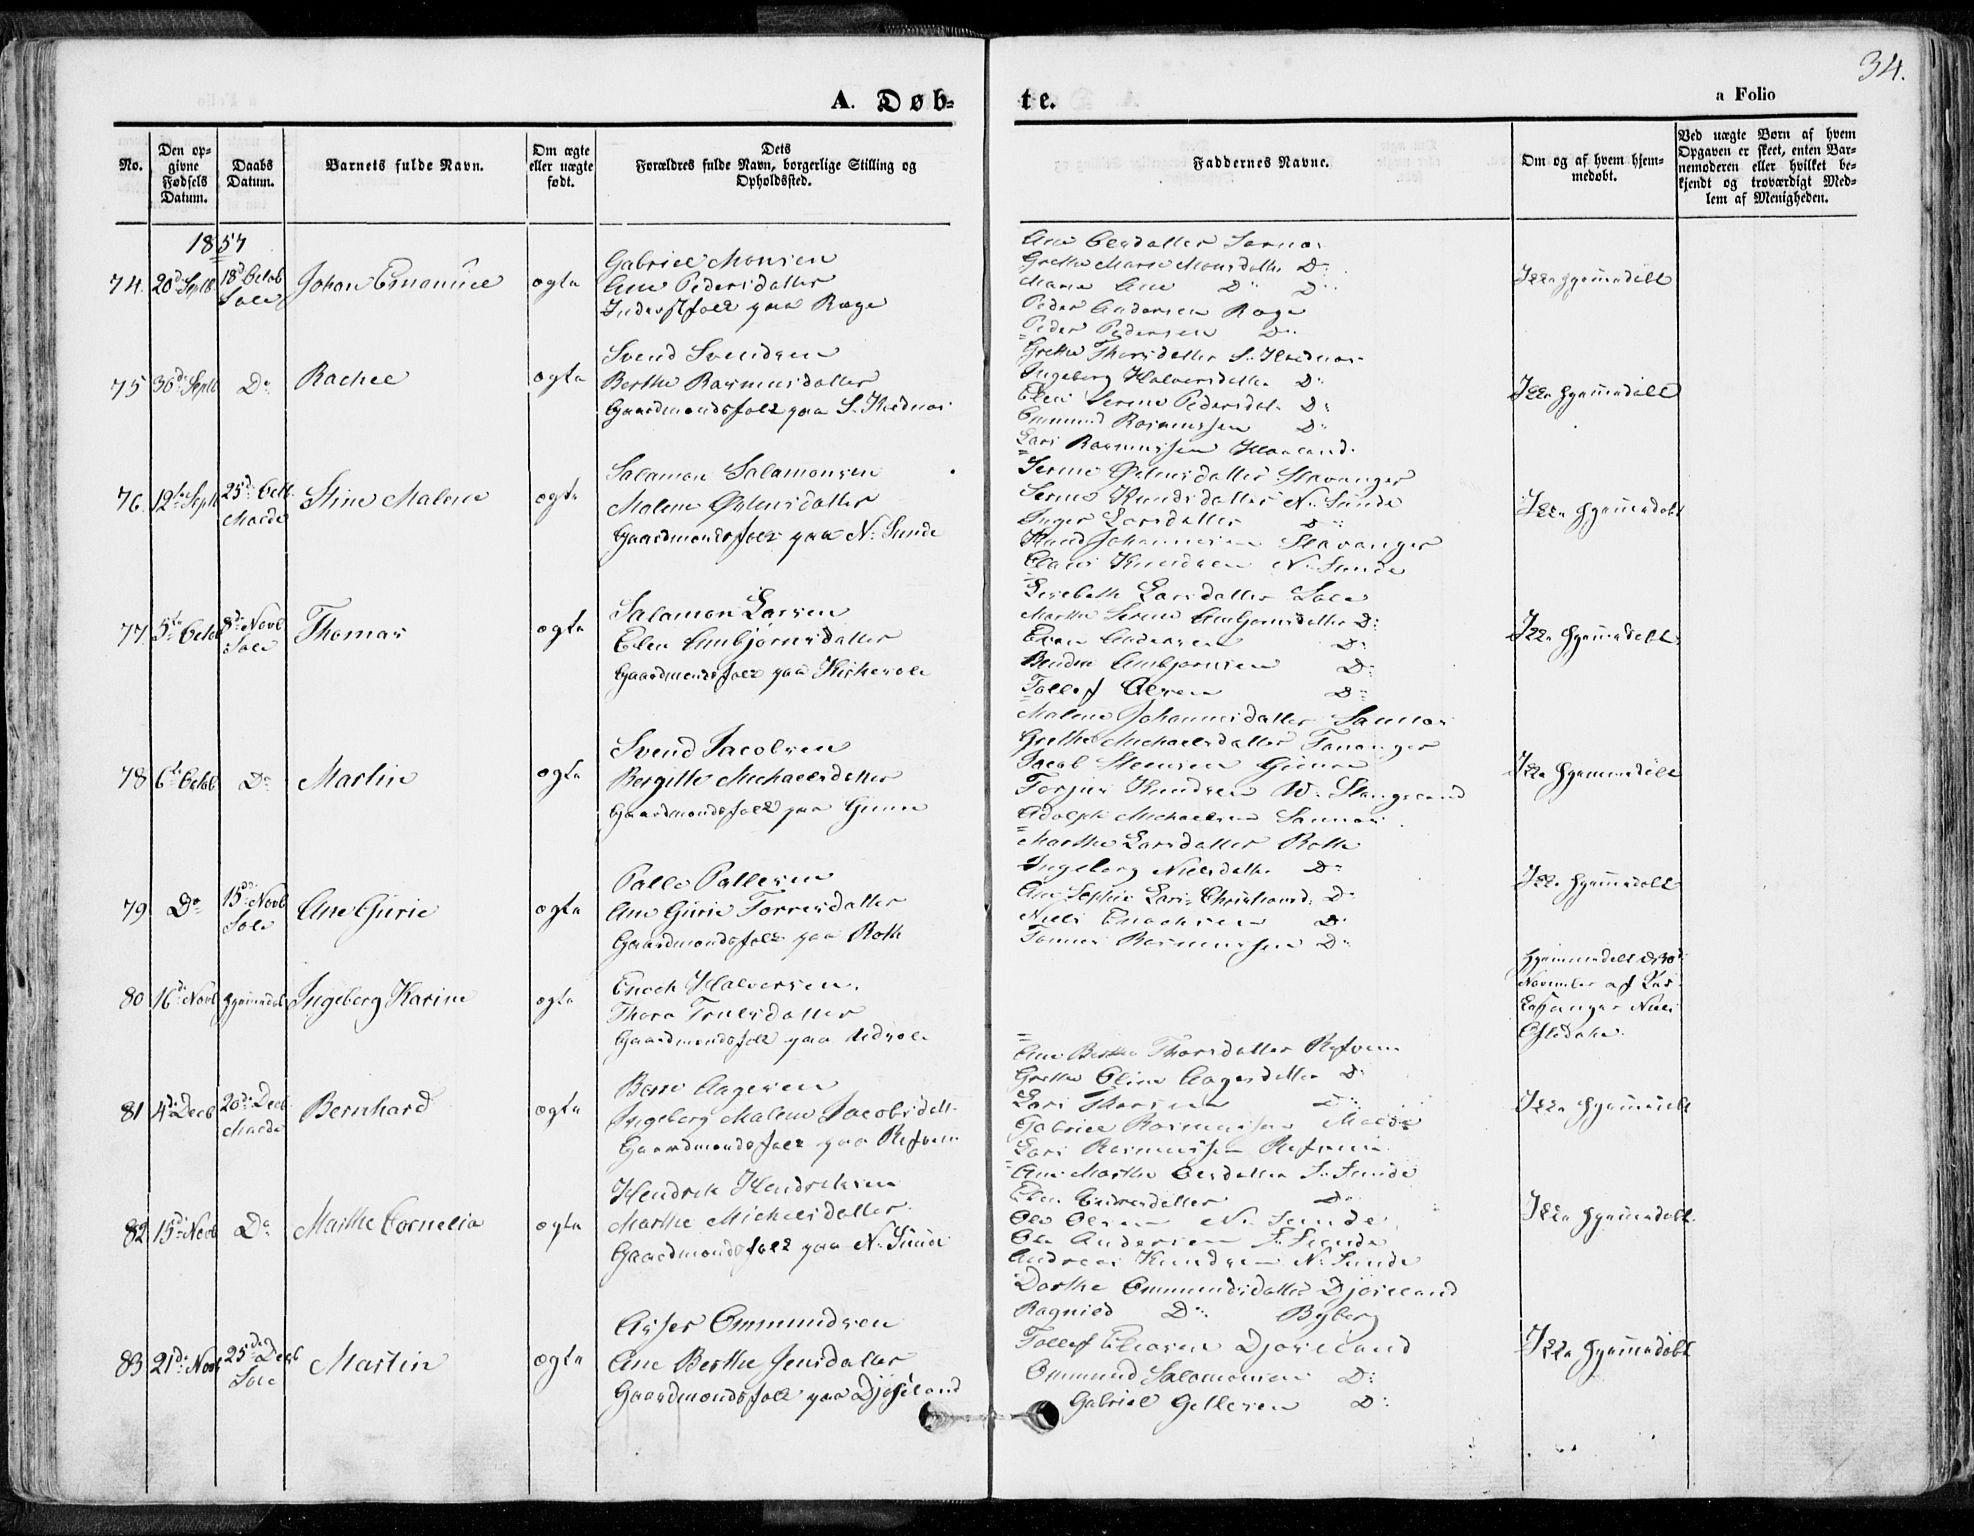 34.
A. Døb-
te.
a Folio
No.
Den op-
givne
Fødsels
Datum.
Daabs
Datum.
Barnets fulde Navn.
Om ægte
eller uægte
født.
Dets
Forældres fulde Navn, borgerlige Stilling og
Opholdssted.
Faddernes Navne.
Om og af hvem hjem-
medøbt.
Ved uægte Børn af hvem
Opgaven er skeet, enten Bar-
nemoderen eller hvilket be-
kjendt og troværdigt Med-
lem af Menigheden.
1857
74. 20d Septb 18d Octob
Sole
Johan Emanuel
ægte
Gabriel Monsen
Ane Pedersdatter
Inderstfolk paa Ræge
Ane Olesdatter Sømnes
Grethe Marie Monsdatter Do
Maria Ane Do Do
Peder Andersen Ræge
Peder Pedersen Do
Ikke hjemmedöbt
75 30d Septb Do
Rachel
ægte
Svend Svendsen
Berthe Rasmusdatter
Gaardmandsfolk paa S. Kødnes
Grethe Thorsdatter S. Kødnes
Ingeborg Halvorsdatter Do
Elen Serine Pedersdat. Do
Ommund Rasmussen Do
Lars Rasmussen Haaland.
Ikke hjemmedöbt
76. 12te Septb 25d Octb
Malde
Stine Malene
ægte
Salamon Salamonsen
Malene Østensdatter
Gaardmandsfolk paa N. Sunde
Serine Østensdatter Stavanger
Serine Knudsdatter N. Sunde
Inger Larsdatter Do
Knud Johannesen Stavanger
Claus Knudsen N. Sunde
Ikke hjemmedöbt
77. 5te Octob 8d Novb
Sole
Thomas
ægte
Salamon Larsen
Elen Ambjørnsdatter
Gaardmandsfolk paa Kirkesole
Lisebeth Larsdatter Sole
Marthe Serine Ambjørnsdatter Do
Even Andersen Do
Bendix Ambjørnsen Do
Tollef Olsen Do
Ikke hjemmedöbt
78 6te Octob Do
Martin
ægte
Svend Jacobsen
Bergitte Michaelsdatter
Gaardmandsfolk paa Gimre
Malene Johannesdatter Sømnes
Grethe Michaelsdatter Tananger
Jacob Steensen Gimre
Torjus Knudsen W. Stangeland
Adolph Michaelsen Sømnes
Ikke hjemmedöbt
79. Do 15d Novb
Sole
Ane Gurie
ægte
Palle Pallesen
Ane Gurie Torresdatter
Gaardmandsfolk paa Roth
Marthe Larsdatter Roth
Ingeborg Nielsdatter Do
Ane Sophie Lars. Christiansd. Do
Niels Enochsen Do
Tønnes Rasmussen Do
Ikke hjemmedöbt
80 16d Novb hjemmedöbt
Ingeborg Karine
ægte
Enoch Halvorsen
Thora Trulsdatter
Gaardmandsfolk paa Udsole
Hjemmedöbt d. 30d
November af Kir-
kesanger Niels
Opstedahl.
81 4d Decb 20d Decb
Malde
Bernhard
ægte
Børre Aagesen
Ingeborg Malene Jacobsdatt.
Gaardmandsfolk paa Refsnes
Ane Berthe Thorsdatter Refsnes
Grethe Oline Aagesdatter Do
Lars Thorsen Do
Gabriel Rasmussen Malde
Lars Rasmussen Refsnes
Ikke hjemmedöbt
82. 15d Novb Do
Marthe Cornelia
ægte
Hendrik Hendriksen
Marthe Michelsdatter
Gaardmandsfolk paa N. Sunde
Ane Marthe Olesdatter S. Sunde
Elen Endresdatter Do
Ole Olsen N. Sunde
Ole Andersen S. Sunde
Andreas Knudsen N. Sunde
Ikke hjemmedöbt
83 21d Novb 25d Decb
Sole
Martin
ægte
Asser Ommundsen
Ane Berthe Jensdatter
Gaardmandsfolk paa Djøseland
Dorthe Ommundsdatter Djøseland
Ragnild Do Byberg
Tollef Eliasen Djøseland
Ommund Salomonsen Do
Gabriel Gellesen Do
Ikke hjemmedöbt